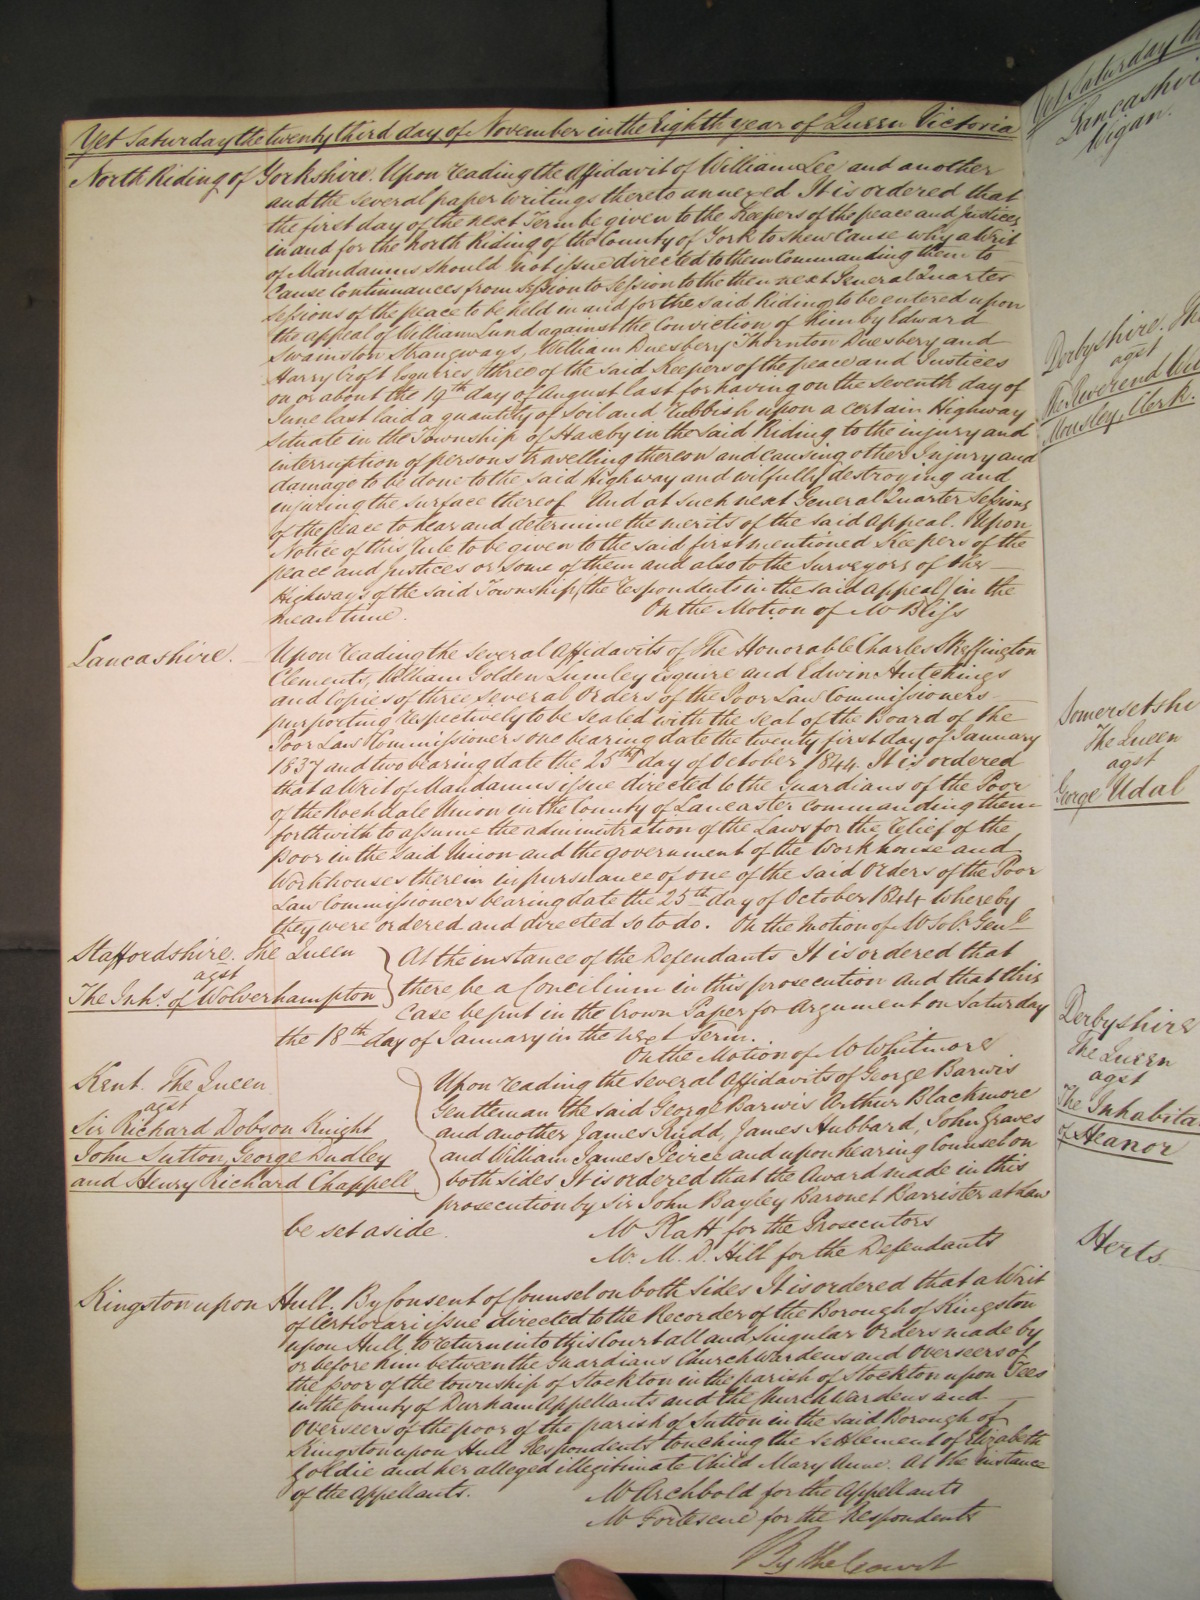 Yet Saturday the twenty third day of November in the Eighth year of Queen Victoria
North Riding of Yorkshire. Upon reading the Affidavit of William Lee and another
and the several paper writings thereto annexed It is ordered that
the first day of the next Term be given to the Keepers of the peace and Justices
in and for the North Riding of the County of York to shew Cause why a Writ
of Mandamus should not issue directed to them Commanding them to
Cause Continuances from Session to Session to the then next General Quarter
Sessions of the peace to be held in and for the said Riding to be entered upon
the appeal of William Lund against the Conviction of him by Edward
Swainston Strangways, William Duesbery Thornton Duesbery and
Harry Croft Esquires, three of the said Keepers of the peace and Justices
on or about the 19th day of August last for having on the seventh day of
June last laid a quantity of Soil and Rubbish upon a certain Highway
situate in the Township of Haxby in the said Riding to the injury and
interruption of persons travelling thereon and causing other Injury and
damage to be done to the said Highway and wilfully destroying and
injuring the surface thereof And at such next General Quarter Sessions
of the peace to hear and determine the merits of the said Appeal. Upon
Notice of this Rule to be given to the said first mentioned Keepers of the
peace and Justices or some of them and also to the Surveyors of the
Highways of the said Township (the Respondents in the said appeal) in the
mean time. On the Motion of Mr Bliss
Lancashire. Upon reading the several Affidavits of The Honorable Charles Skeffington
Clements, William Golden Lumley Esquire and Edwin Hutchings
and Copies of three several Orders of the Poor Law Commissioners
purporting respectively to be sealed with the seal of the Board of the
Poor Law Commissioners one bearing date the twenty first day of January
1837 and two bearing date the 25th day of October 1844 It is ordered
that a Writ of Mandamus issue directed to the Guardians of the Poor
of the Rochdale Union in the County of Lancaster commanding them
forthwith to assume the administration of the Laws for the relief of the
Poor in the said Union and the government of the Workhouse and
Workhouses therein in pursuance of one of the said Orders of the Poor
Law Commissioners bearing date the 25th day of October 1844 whereby
they were ordered and directed so to do. On the Motion of Mr Solr Genl
Staffordshire. The Queen
agst
The Inhs. of Wolverhampton
At the instance of the Defendants It is ordered that
there be a Concilium in this prosecution And that this
Case be put in the Crown Paper for Argument on Saturday
the 18th day of January in the next Term.
On the Motion of Mr Whitmore
Kent. The Queen
agst
Sir Richard Dobson Knight
John Sutton, George Dudley
and Henry Richard Chappell
Upon reading the several Affidavits of George Barwis
Gentleman the said George Barwis Arthur Blackmore
and another James Rudd, James Hubbard, John Graves
and William James Peirce and upon hearing Counsel on
both sides It is ordered that the Award made in this
prosecution by Sir John Bayley Baronet Barrister at Law
be set aside. Mr Platt for the Prosecutors
Mr. M. D. Hill for the Defendants
Kingston upon Hull. By Consent of Counsel on both Sides It is ordered that a Writ
of Certiorari issue directed to the Recorder of the Borough of Kingston
upon Hull, to return into this Court all and singular Orders made by
or before him between the Guardians Churchwardens and Overseers of
the poor of the township of Stockton in the parish of Stockton upon Tees
in the County of Durham Appellants and the Churchwardens and
Overseers of the poor of the parish of Sutton in the said Borough of
Kingston upon Hull Respondents touching the settlement of Elizabeth
Goldie and her alleged illegitimate Child Mary Anne. At the instance
of the Appellants. Mr Archbold for the Appellants
Mr Fortescue for the Respondents
By the Court
Yet Saturday
Wigan.
Derbyshire.
agst
The Reverend
Mousley, Clerk.
The Queen
agst
George Udal
Derbyshire
The Queen
agst
of Heanor
Herts.